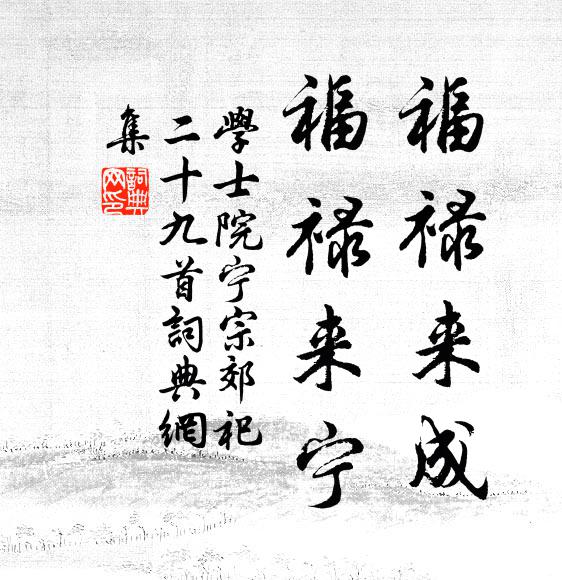 福禄来成
福禄来宁
學士院宁宗郊祀
二十九首詞典網
集
詞典
网印